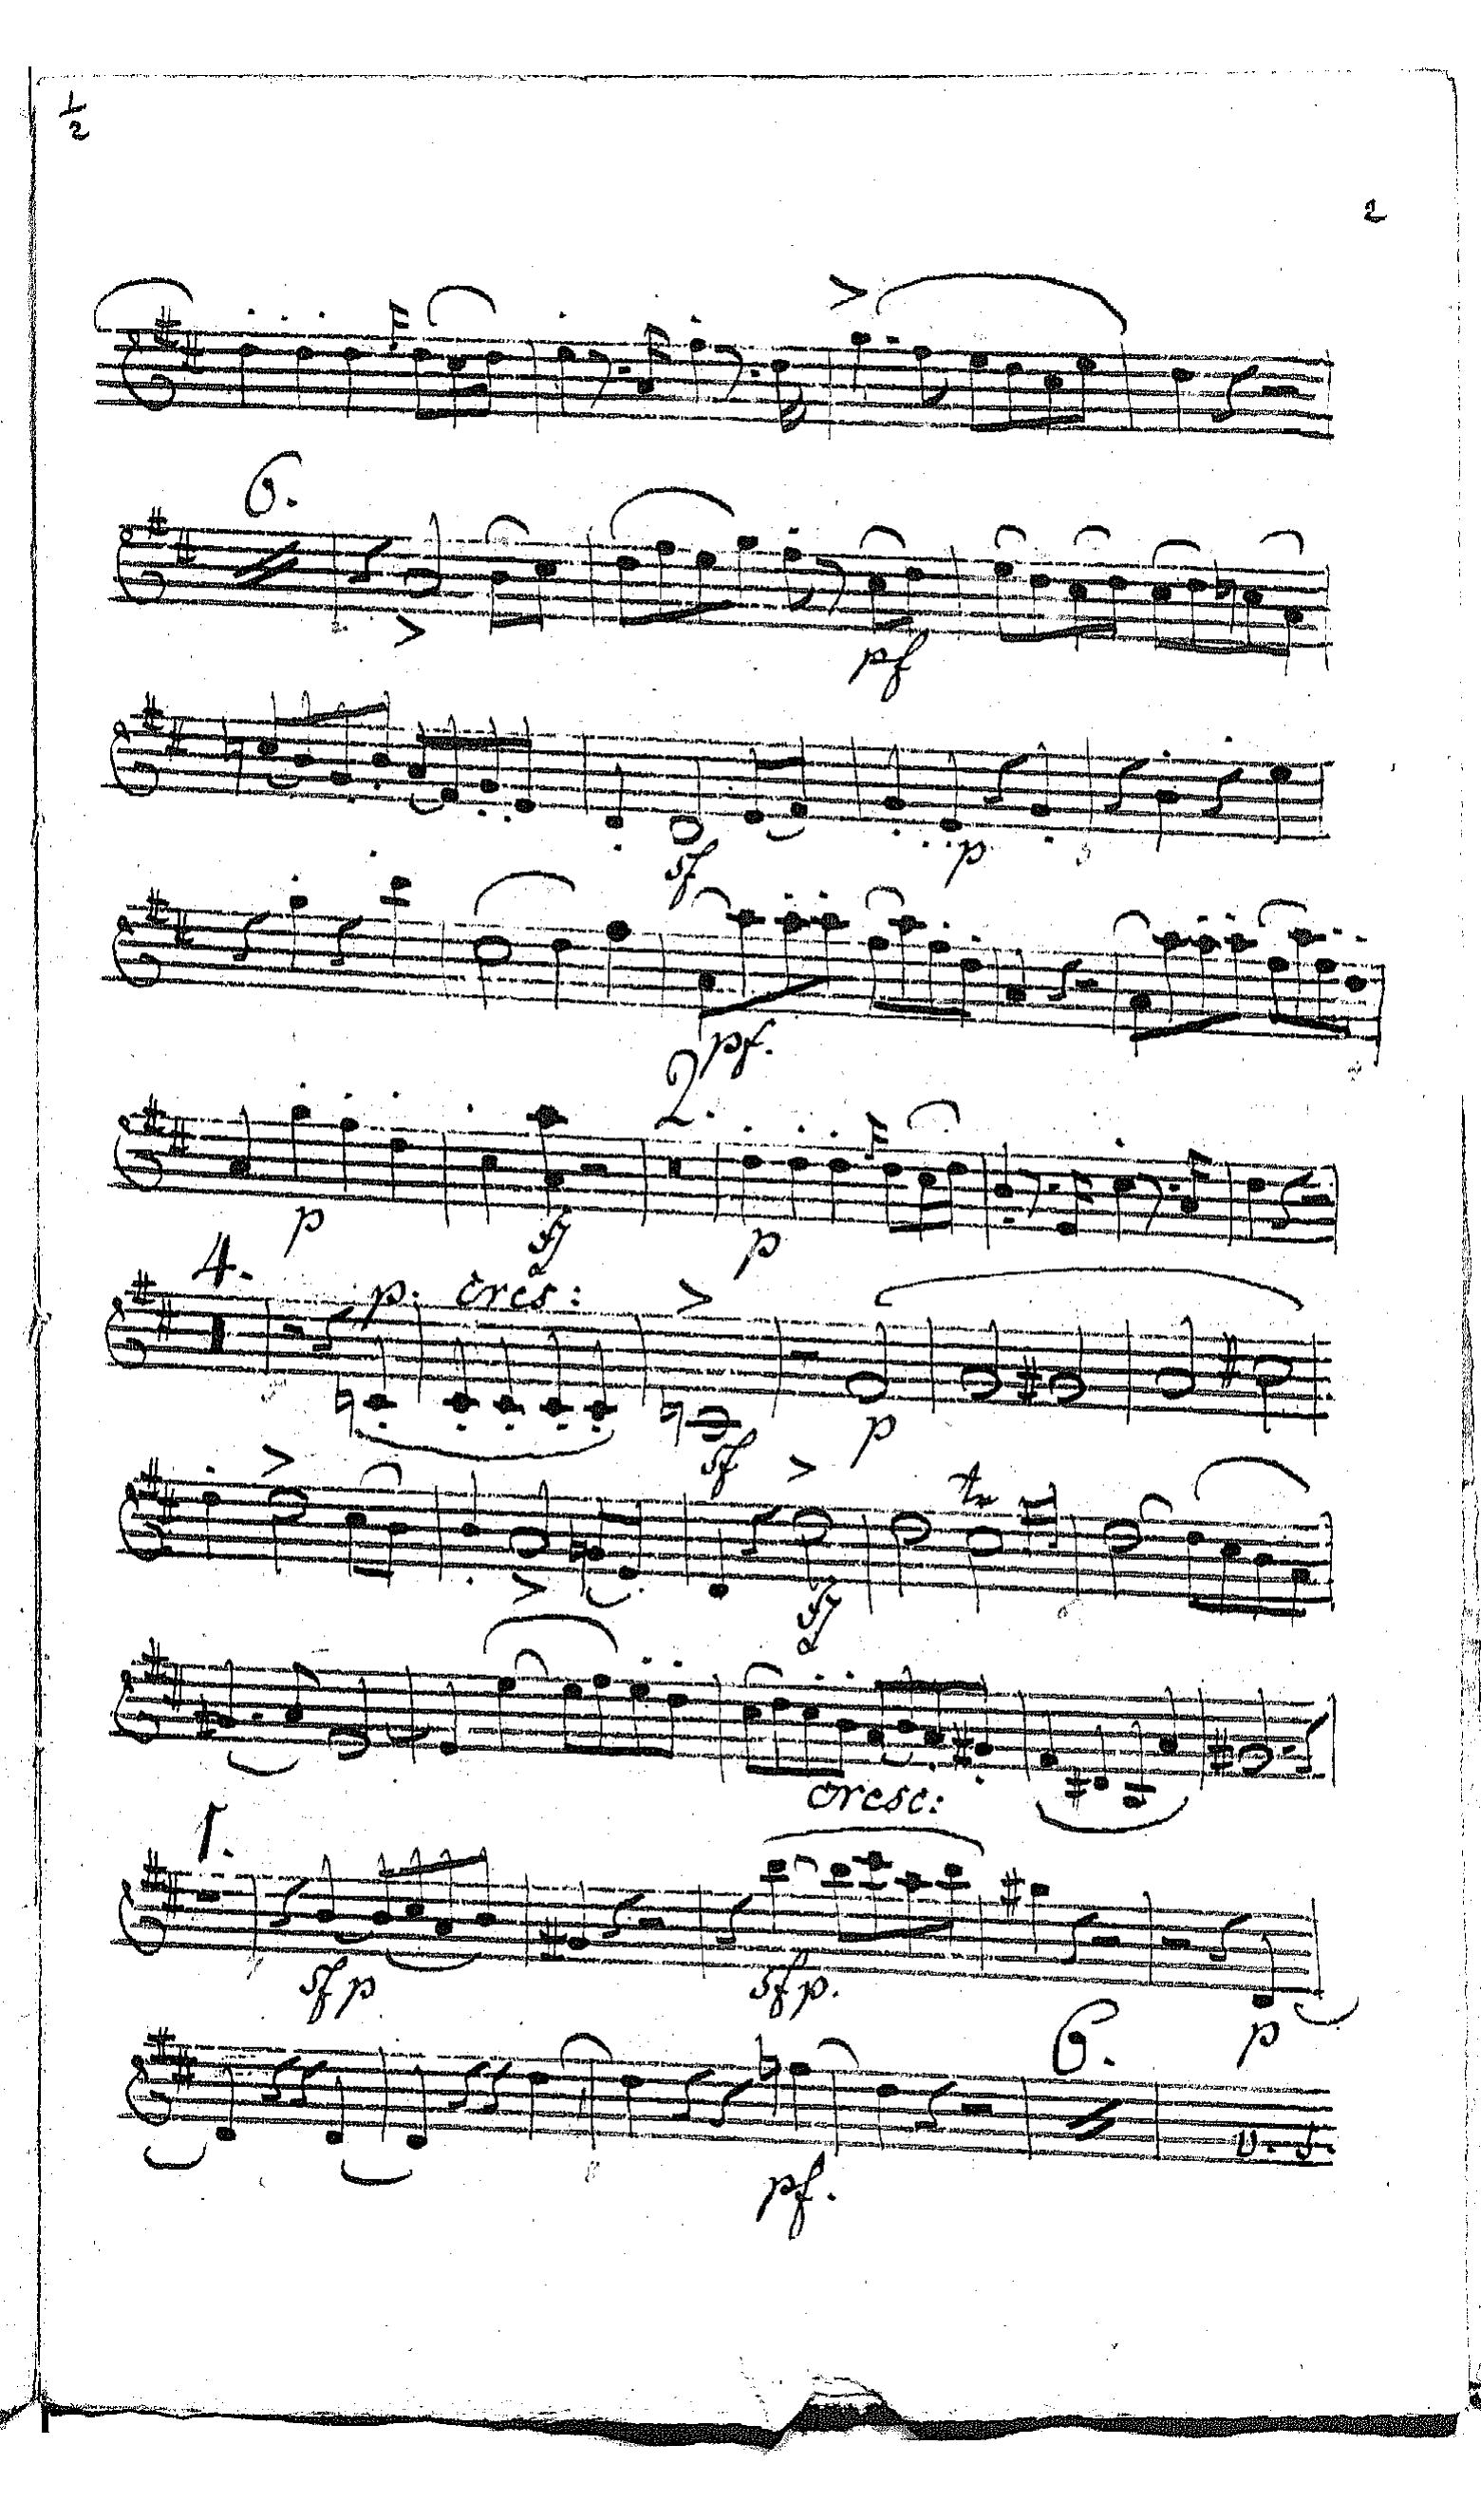 1/2
2
6.
pf
sf p
pf.
2.
p sf p
4.
p. cres:
sf p
tr
sf
cresc:
1.
sfp sfp. p
6.
v. s.
pf.